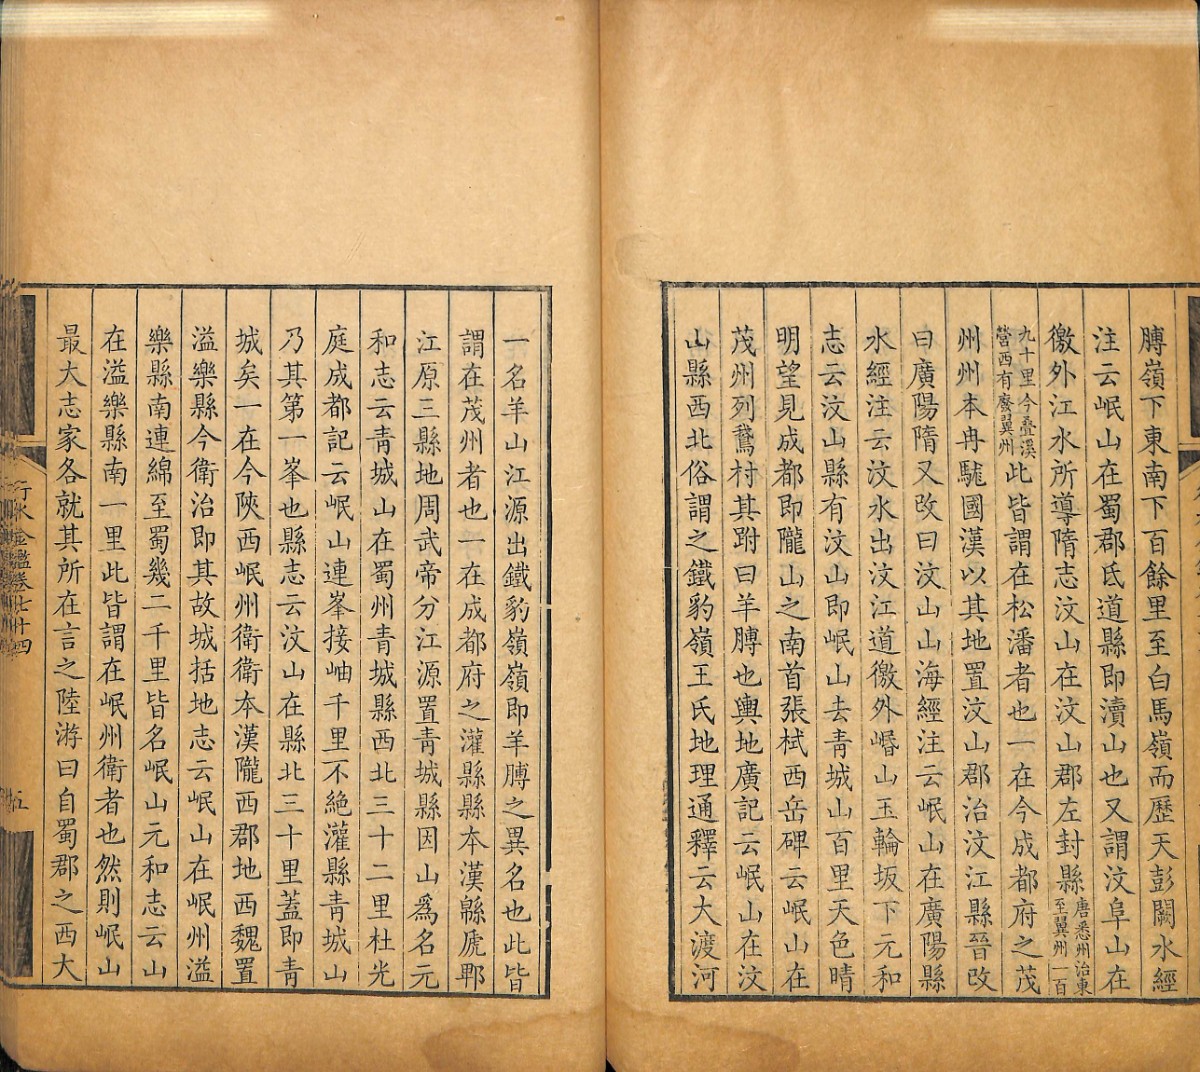 膊嶺下東南下百餘里至白馬嶺而歷天彭闕水經
注云岷山在蜀郡氐道縣即瀆山也又謂汶阜山在
徼外江水所導隋志汶山在汶山郡左封縣唐悉州治東至翼州一百
九十里今疊溪營西有廢翼州此皆謂在松潘者也一在今成都府之茂
州州本冉駹國漢以其地置汶山郡治汶江縣晉改
曰廣陽隋又改曰汶山山海經注云岷山在廣陽縣
水經注云汶水出汶江道徼外㟭山玉輪坂下元和
志云汶山縣有汶山即岷山去青城山百里天色晴
明望見成都即隴山之南首張栻西岳碑云岷山在
茂州列鵞村其跗曰羊膊也輿地廣記云岷山在汶
山縣西北俗謂之鐵豹嶺王氏地理通釋云大渡河
一名羊山江源出鐵豹嶺嶺即羊膊之異名也此皆
謂在茂州者也一在成都府之灌縣縣本漢緜虒郫
江原三縣地周武帝分江源置青城縣因山爲名元
和志云青城山在蜀州青城縣西北三十二里杜光
庭成都記云岷山連峯接岫千里不絶灌縣青城山
乃其第一峯也縣志云汶山在縣北三十里蓋即青
城矣一在今陝西岷州衛衛本漢隴西郡地西魏置
溢樂縣今衛治即其故城括地志云岷山在岷州溢
樂縣南連綿至蜀幾二千里皆名岷山元和志云山
在溢樂縣南一里此皆謂在岷州衛者也然則岷山
最大志家各就其所在言之陸游曰自蜀郡之西大
行水金鑑卷七十四
五